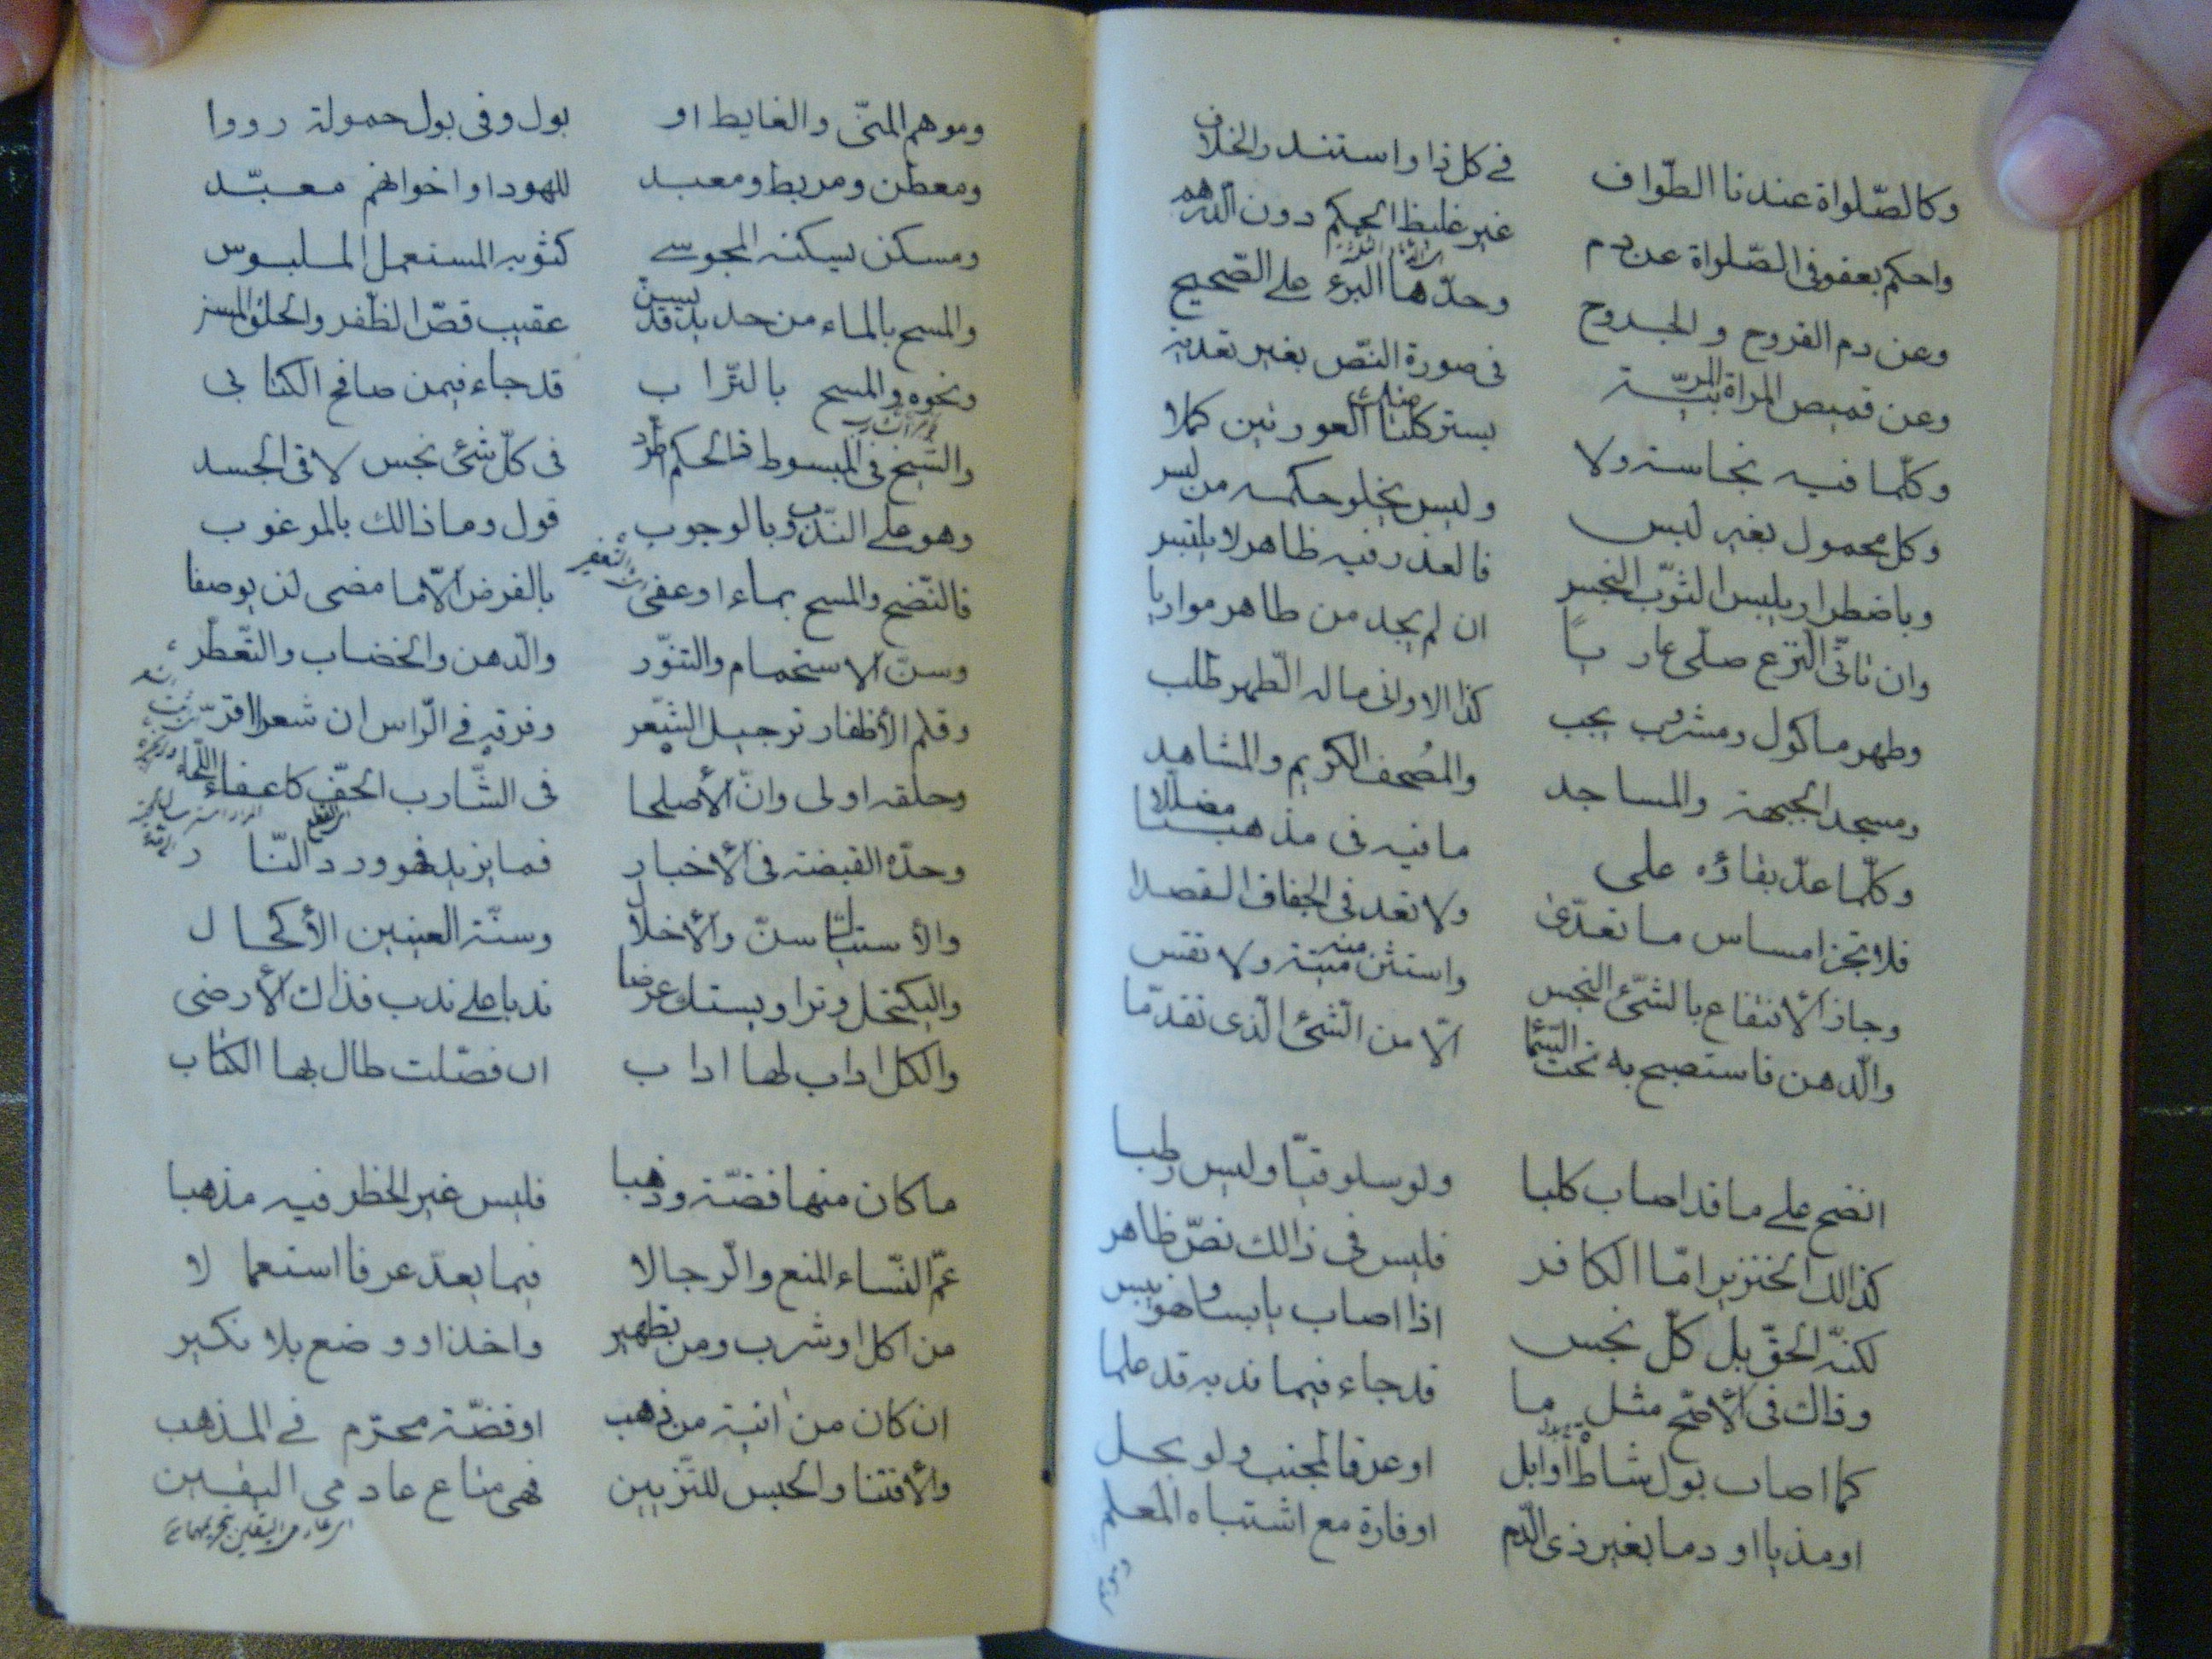 وكالصّلواة عندنا الطّواف في كل ذا واستند والخلاف
واحكم بعفو في الصّلواة عن دم غير غليظ الحكم دون الدرهم
وعن دم القروح والجروح وحدّها البرء على الصّحيح
وعن قميص المراة المربيّة في صورة النّص بغير تعديه
وكلّما فيه نجاسة ولا يستر كلتا العورتين كملا
وكل محمول بغير لبس وليس يخلو حكمه من لبس
وباضطرار يلبس الثوب النجس فالعذر فيه ظاهر لا يلتبس
وان تاتّى النزع صلّى عاريا ان لم يجد من طاهر مواريا
وطهر ماكول ومشروب يجب كذا الاواني ماله الطّهر طلب
ومسجد الجبهة والمساجد والمصحف الكريم والمشاهد
وكلّما عدّ بقاؤه على ما فيه في مذهبنا مضلّلا
فلا تجز امساس ما تعدّى ولا تعد في الجفاف القصدا
وجاز الأنتفاع بالشّئ النجس واستثن منه ميتة ولا تقس
والدّهن فاستصبح به تحت السّما الّا من الشّئ الّذي تقدّما
انضح على ما قد اصاب كلبا ولو سلوقيّا وليس رطبا
كذالك الخنزير امّا الكافر فليس في ذالك نصّ ظاهر
لكنّه الحقّ بل كلّ نجس اذا اصاب يابسا وهو يبس
وذاك في الأصّح مثل ما قد جاء فيما ندبه قد علما
كما اصاب بول شاة او ابل او عرقا لمجنب ولو بحل
او مذيا او دما بغير ذى الدّم او فارة مع اشتباه المعلم
وموهم المنيّ والغايط او بول وفي بول حمولة رووا
ومعطن ومربط ومعبد لليهود او اخوانهم معبّد
ومسكن يسكنه المجوسي كثوبه المستعمل الملبوس
والمسح بالماء من حديد قد يسنّ عقيب قصّ الظّفر والحلق المسن
ونحوه والمسح بالتّراب قد جاء فيمن صافح الكتابي
والشيخ في المبسوط في الحكم طرد في كلّ شئ نجس لاقى الجسد
وهو على النّدب وبالوجوب قول وما ذالك بالمرغوب
فالنّضح والمسح بماء او عفى بالفرض الّا ما مضى لن يوصفا
وسنّ الاستحمام والتنوّر والدّهن والخضاب والتّعطّر
وقلم الأظفار ترجيل الشّعر وفرقه في الرّاس ان شعر اقرّ
وحلقه اولى وانّ الأصلحا في الشّارب الحفّ كاعفاء اللّحا
وحدّه القبضة في الأخبار فما يزيد فهو ورد النّار
والأستباك سنّ والأخلال وسنّة العينين الأكحال
واليكتحل وترا ويستك عرضا ندبا على ندب فذاك الأرضى
والكل اداب لها اداب ان فصّلت طال بها الكتاب
ما كان منها فضّة وذهبا فليس غير الحظر فيه مذهبا
عمّ النّساء المنع والرّجالا فيما يعدّ عرفا استعمالا
من اكل او شرب ومن تطهير واخذ او وضع بلا نكير
ان كان من انية من ذهب او فضّة محترم في المذهب
والأقتنا والحبس للتّزيين فهي متاع عادمى اليقين